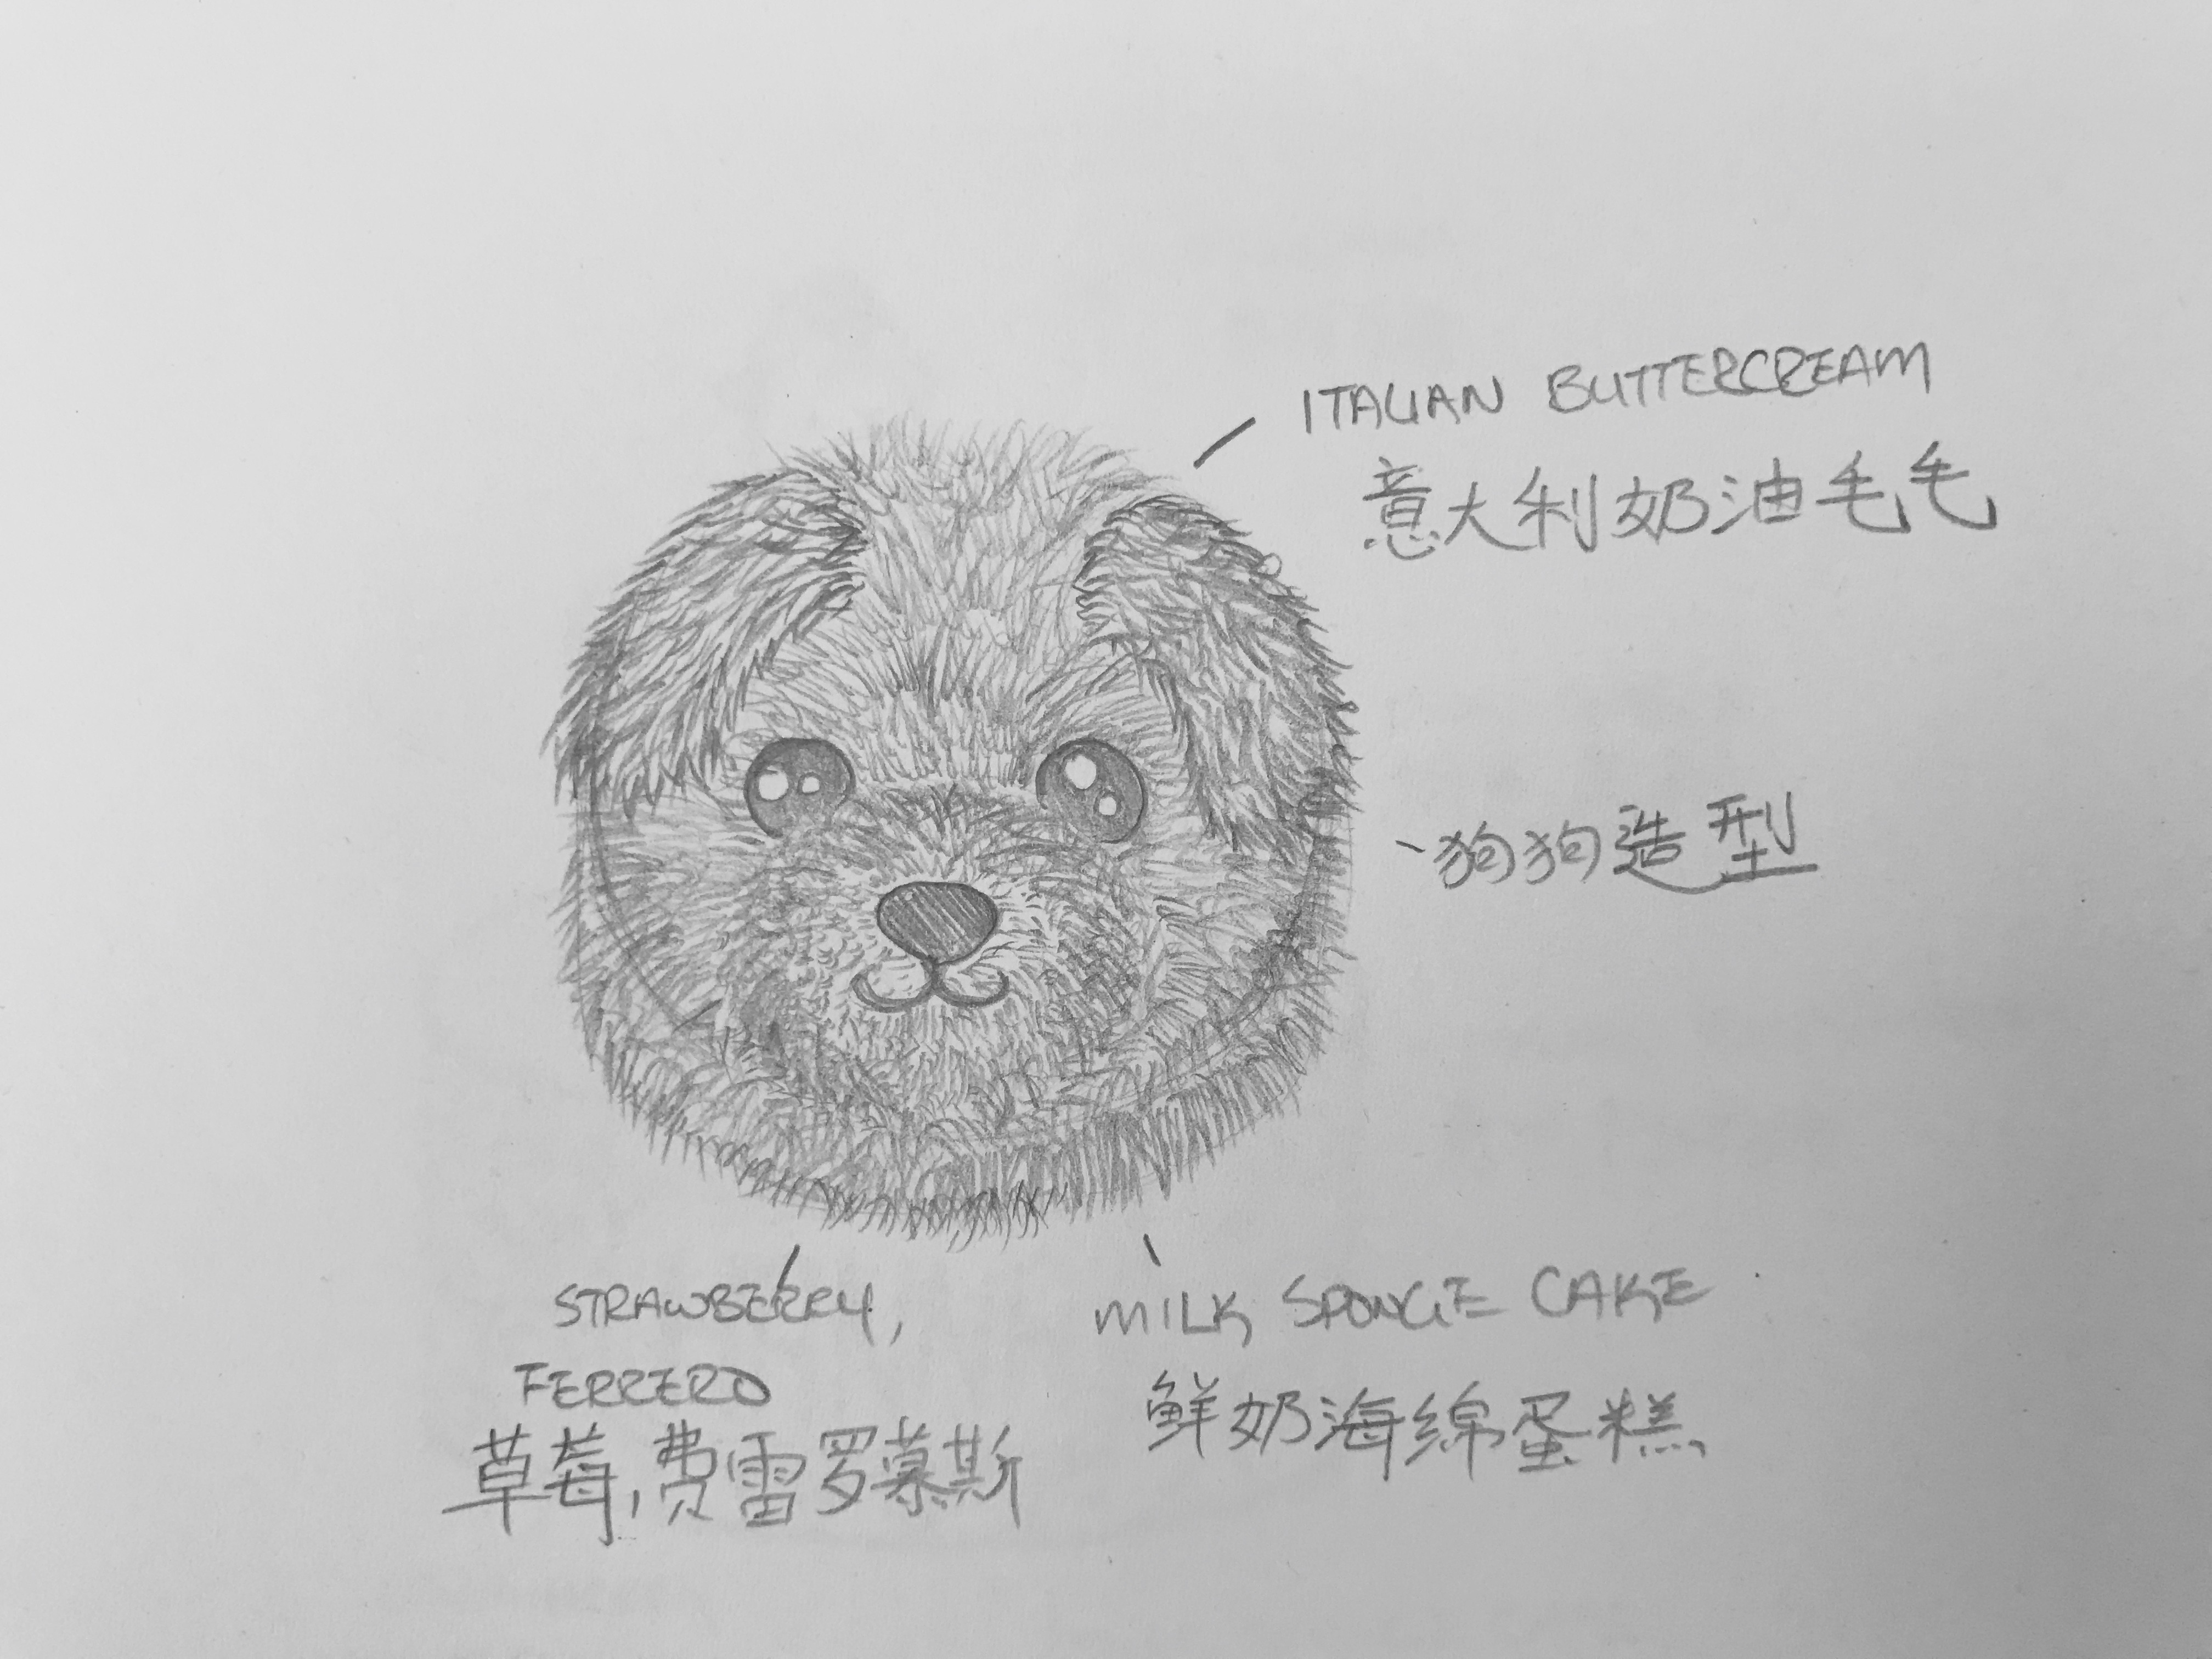 ITALIAN BUTTERCREAM
意大利奶油毛毛
狗狗造型
STRAWBERRY,
FERRERO
草莓,费雷罗慕斯
MILK SPONGE CAKE
鲜奶海绵蛋糕